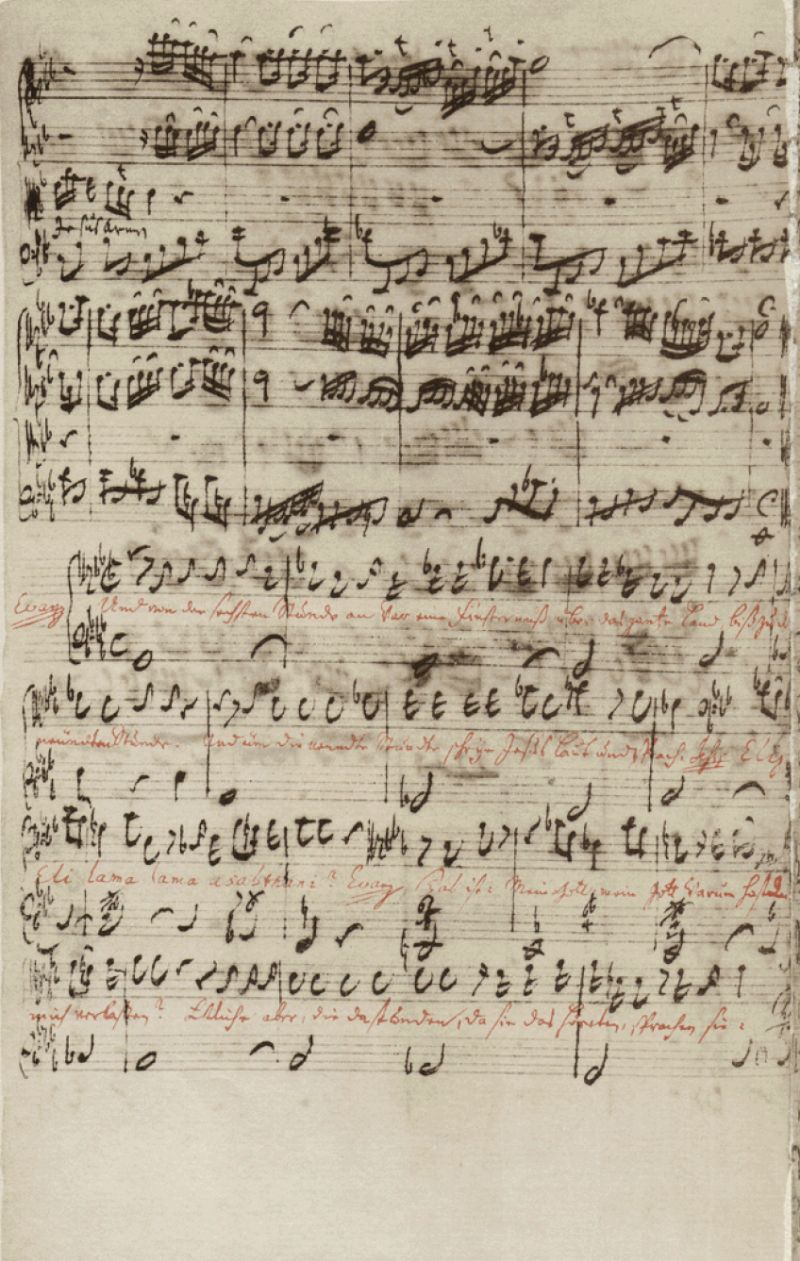 in Jesus Armen
Evang. Und von der sechsten Stunde an war eine Finsterniß über das gantze Land biß zu der
neundten Stunde. Und um die neundte Stunde schrye Jesus laut und sprach: Jesus Eli,
Eli lama lama asabthani? Evang. Das ist: Mein Gott, mein Gott warum hastu
mich verlaßen? Etliche aber, die da stunden, da sie das höreten, sprachen sie: